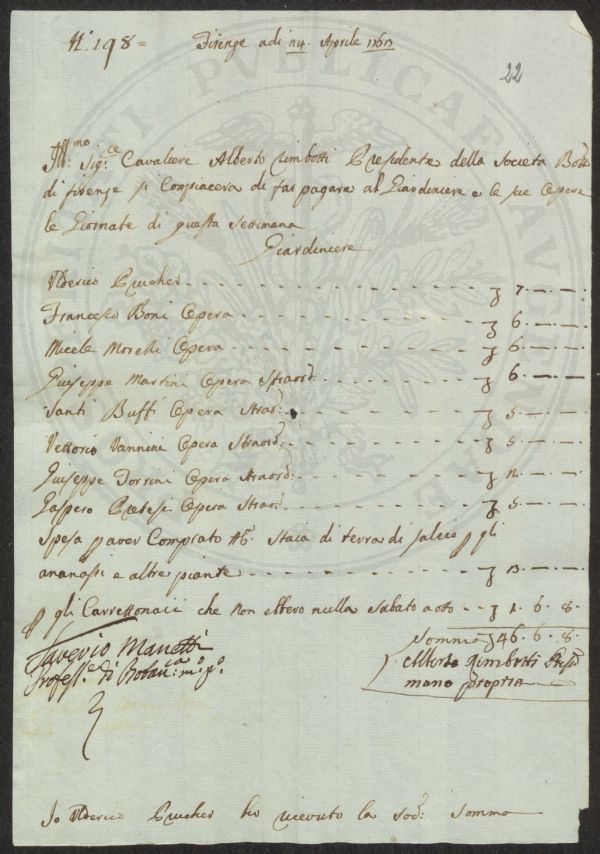 N.° 198 =
Firenze adi 24 Aprile 1763
22
Ill.mo Sig.re Cavaliere Alberto Rimbotti Presidente della Società Bot.
di firenze si Compiacerà di far pagare al Giardiniere e le sue Opere
le Giornate di questa Settimana
Giardiniere
Ulderico Prucher - - - 7. — —
Francesco Boni Opera - - - 6. — —
Micele Morelli Opera - - - 6. — —
Giuseppe Martini Opera Straord: - - - 6. — —
Santi Buffi Opera Strard: - - - 5. — —
Vettorio Vannini Opera Straord: - - - 5. — —
Giuseppe Torrini Opera Straord: - - - 2. — —
Gaspero Pratesi Opera Straord: - - - 5. — —
Spesa p aver Comprato Staia di terra di Salcio p gli
ananassi e altre piante - - - 3. — —
p gli Carrettonaii che non ebbero nulla Sabato - - 1. 6. 8.
Somma 46. 6. 8.
Saverio Manetti
Profess.e di Botan.ca m.o p.o
Alberto Rimbotti Presid.
mano propria
Io Ulderico Prucher ho ricevuto la sod: Somma